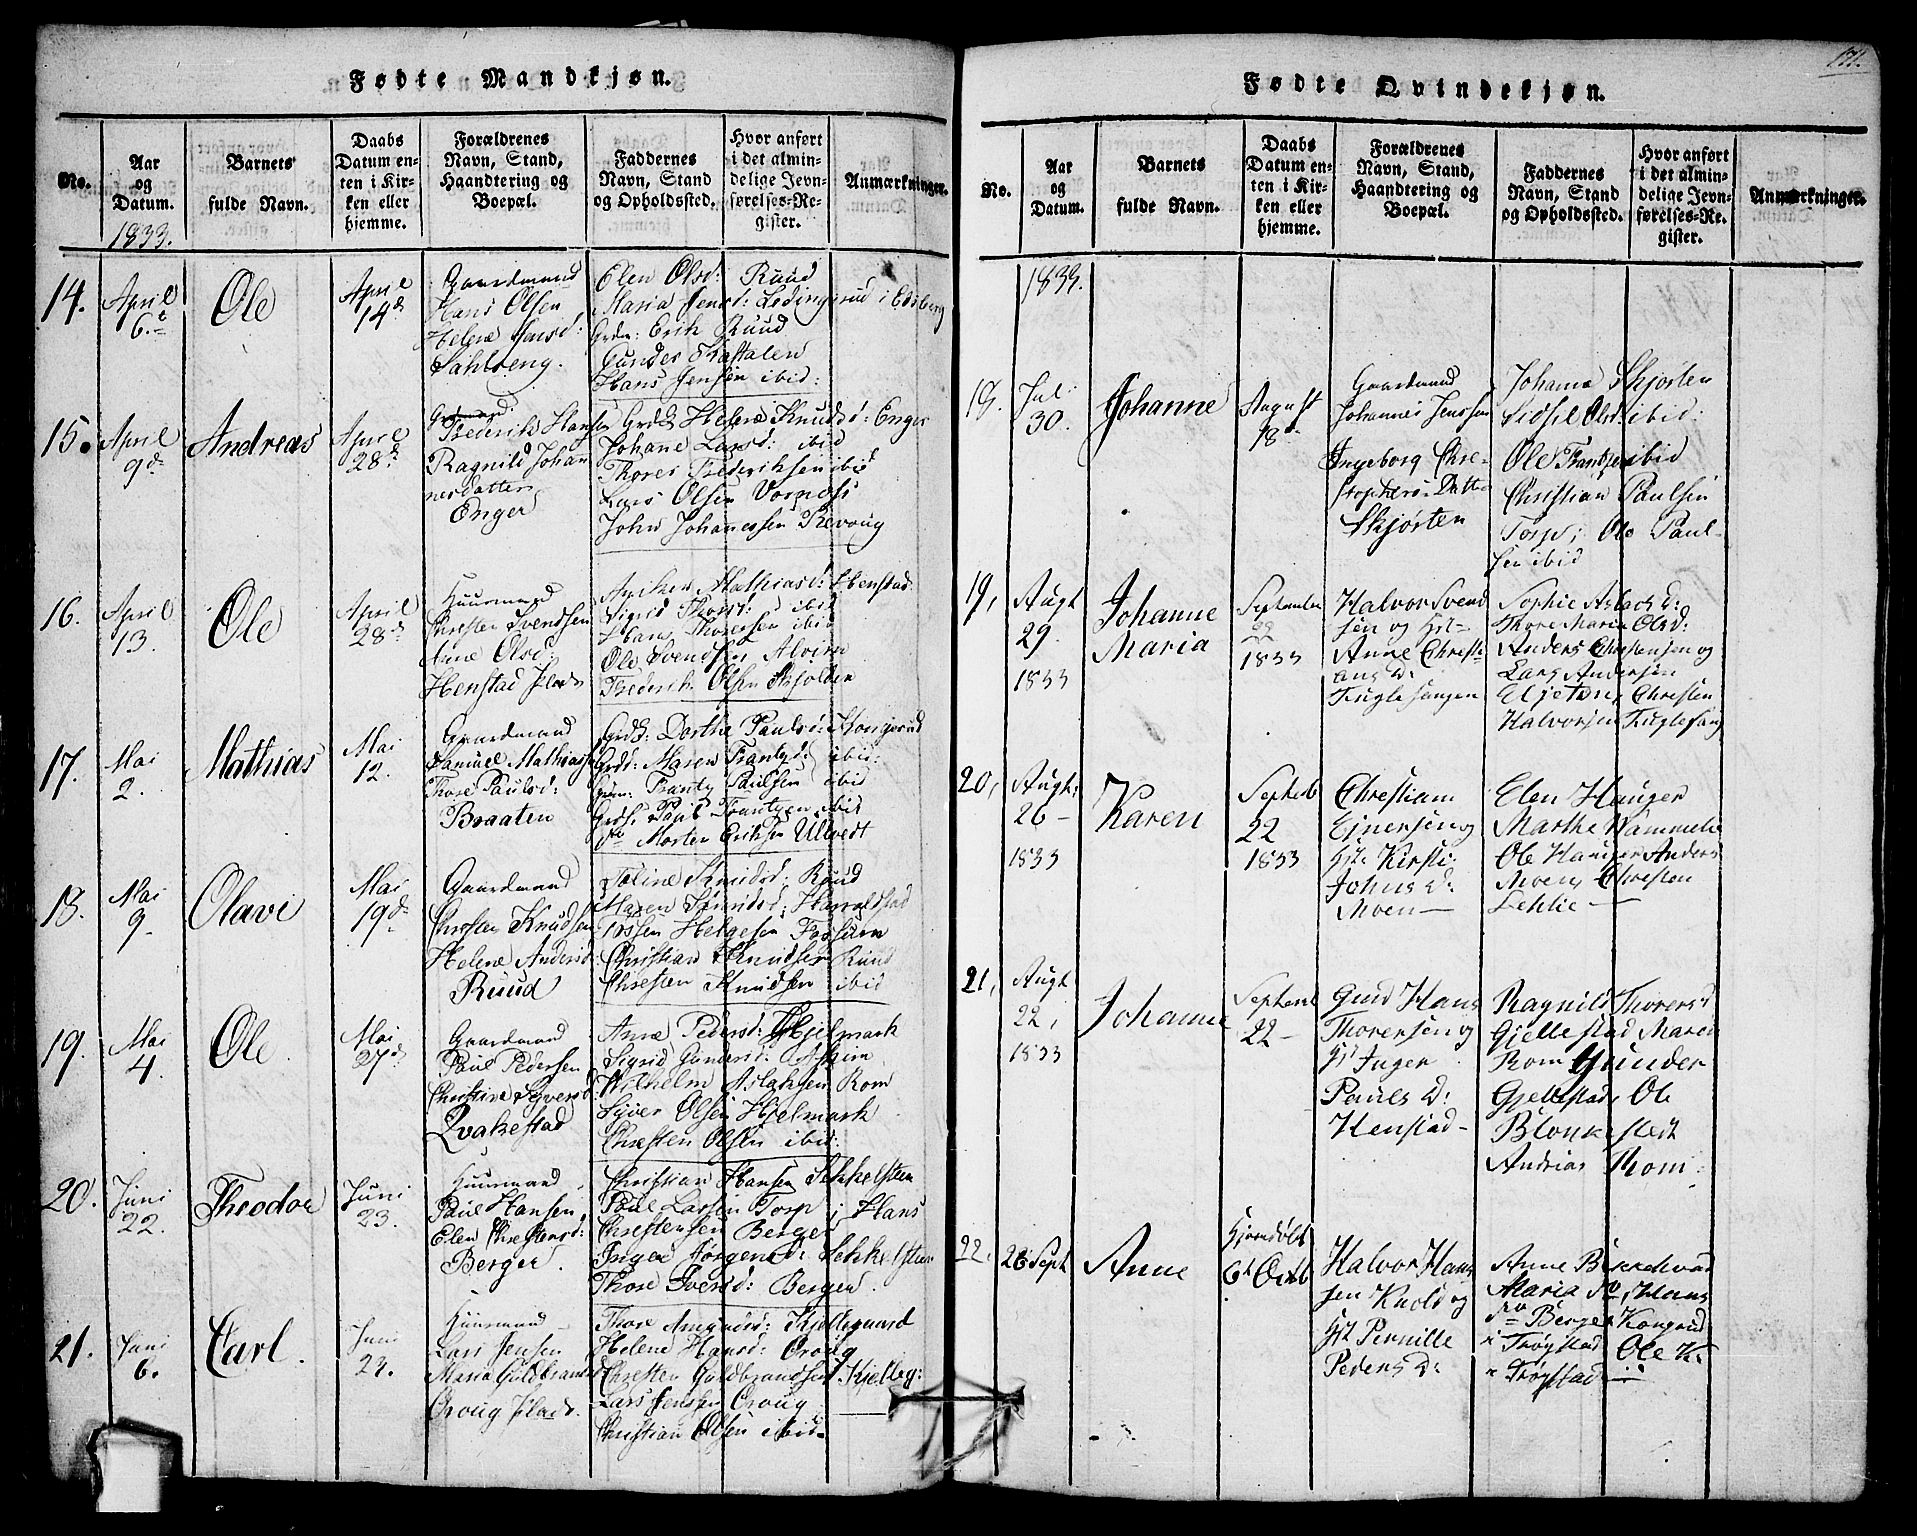 Fødte Mandkjøn.
No.
Aar
og
Datum.
Barnets
fulde Navn.
Daabs
Datum en-
ten i Kir-
ken eller
hjemme.
Forældrenes
Navn, Stand,
Haandtering og
Boepæl.
Faddernes
Navn, Stand
og Opholdssted.
Hvor anført
i det almin-
delige Jevn-
førelses-Re-
gister.
Anmærkninger.
1833.
14.
April
6te
Ole
April
14d
Gaardmand
Hans Olsen
Helene Jensd:
Sahlæng.
Elen Olsd: Ruud
Maria Jensd: i Edsberg
Grdm: Erik Ruud
Gunder Kastalen
Hans Jensen ibid:
15.
April
9d
Andreas
April
28d
Frederik Hansen
Ragnild Johan
nesdatter
Enger
Helene Knudsd: Enger
Johane Larsd: ibid
Thores Frederiksen ibid
Lars Olsen
John Johanessen
16.
April
13.
Ole
April
28d
Huusmand
Christen Svendsen
Anne Olsd:
Henstad Plads
Mathiasd: Henstad
Sigrid Thorsd: ibid
Hans Thoresen ibid
Ole Svendsen
Frederik Olsen Skjolden
17.
Mai
2.
Mathias
Mai
12.
Gaardmand
Samuel Mathiasse
Thore Paulsd:
Braaten
Grdk: Dorthe Paulsd: Kongsrud
Grdk: Maren Frantzd: ibid:
Grdm: Frantz Paulsen ibid
Frantzen ibid
Morten Eriksen Ullvedt
18.
Mai
9.
Olavi
Mai
19d
Gaardmand
Christen Knudsen
Helene Andersd:
Ruud
Knudsd: Ruud
Maren Harraldstad
Helgesen Fossum
Christian Knudsen Ruud
Christen Knudsen ibid
19.
Mai
4.
Ole.
Mai
27d
Gaardmand
Paul Pedersen
Christine Syversd:
Qvakestad
Anne Pedersd: Hjelmark
Sigrid Gundersd: Askim
Wilhelm Aslaksen Rom
Syver Olsen Hjelmark
Christen Olsen ibid:
20.
Juni
22.
Theodor
Juni
23.
Huusmand
Paul Hansen
Elen Christensd:
Berger.
Christian Hansen Sekkelsten
Poul Larsen Torp i Hans
Christensen Berger
Inger Jørgensd: Sekkelsten
Thore Iversd: Berger.
21.
Juni
6.
Carl.
Juni
Huusmand
Lars Jensen
Maria Guldbrands
Oroug Plads.
Thore Amundsd: Kjellegaard
Helene Hansd: Oroug
Christen Guldbrandsen Kjelleg:
Lars Jensen Oroug
Christian Olsen ibid
Fødte Qvindekjøn.
171.
No.
Aar
og
Datum.
Barnets
fulde Navn.
Daabs
Datum en-
ten i Kir-
ken eller
hjemme.
Forældrenes
Navn, Stand,
Haandtering og
Boepæl.
Faddernes
Navn, Stand
og Opholdssted.
Hvor anført
i det almin-
delige Jevn-
førelses-Re-
gister.
Anmærkninger.
1833.
18.
Jul:
30.
Johanne
August
18d
Gaardmand
Johannes Jenssen
Ingeborg Chre-
stophers: Datter
Skjørten
Johana Skjørten
Sidsil Olsd: ibid:
Ole Frantzen ibid
Christian Paulsen
Torp; Ole Paul-
sen ibid
19,
Augt
29.
1833
Johanne
Maria
September
22
1833
Halvor Svend
sen og Hst-
Anne Christi
ans D:
Fuglesangen
Sophie Asbach D:
Thore Maria Olsd:
Anders Christensen og
Lars Andersen
Eljeton, Christen
Halvorsen Fuglesang
20,
Augt:
26-
1833
Karen
Septemb
22
1833
Christian
Ejnersen og
Hst: Kirsti
Johns D:
Moen-
Elen Hauger
Marthe
Ole Hauger Anders
Moen, Christen
21,
Augt
22,
1833
Johanne
Septemb
22-
Gud Hans
Thorersen og
Hst Inger
Paules D:
Henstad-
Ragnild Thorers d
Gjellestad Maren
Rom Gunder
Gjellestad, Ole
Blonkestedt
Andrias Thom
22.
26 Sept
Anne
Hjemdøbt
6t Octb
Halvor Hans
sen Knold og
Hst Pernille
Peders D:
Anne
Maria Do, Hans
do Berger Kongsrud
i Trøgstad Ole K.
i Trøgstad